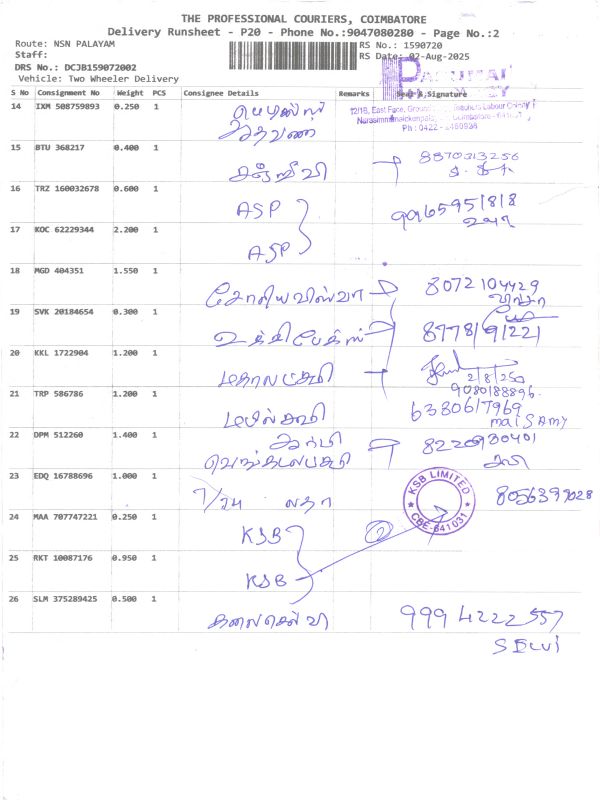 THE PROFESSIONAL COURIERS, COIMBATORE
Delivery Runsheet - P20 - Phone No.:9047080280 - Page No.:2
Route: NSN PALAYAM RS No.: 1590720
Staff: RS Date: 02-Aug-2025
DRS No.: DCJB159072002
Vehicle: Two Wheeler Delivery
S No Consignment No Weight PCS Consignee Details Remarks Seal & Signature
12/18, East Face, Ground
Narasimmanaickenpalayam
Ph : 0422 - 2460938
14 IXM 508759893 0.250 1
15 BTU 368217 0.400 1 சஞ்ஜீவி 8870313256
16 TRZ 160032678 0.600 1 ASP 9965951818
17 KOC 62229344 2.200 1 ASP
18 MGD 404351 1.550 1 8072104429
19 SVK 20184654 0.300 1 8778191221
20 KKL 1722904 1.200 1 மகாலட்சுமி 2/8/25
9080188896
21 TRP 586786 1.200 1 மயில்சாமி 6380617969
maiSAMY
22 DPM 512260 1.400 1 8220930401
வெங்கடலட்சுமி
23 EDQ 16788696 1.000 1 7/24 லதா 8056399028
KSB LIMITED
CBE-641031
24 MAA 707747221 0.250 1 KSB 2
25 RKT 10087176 0.950 1 KSB
26 SLM 375289425 0.500 1 கலைசெல்வி 9994222557
SELVI